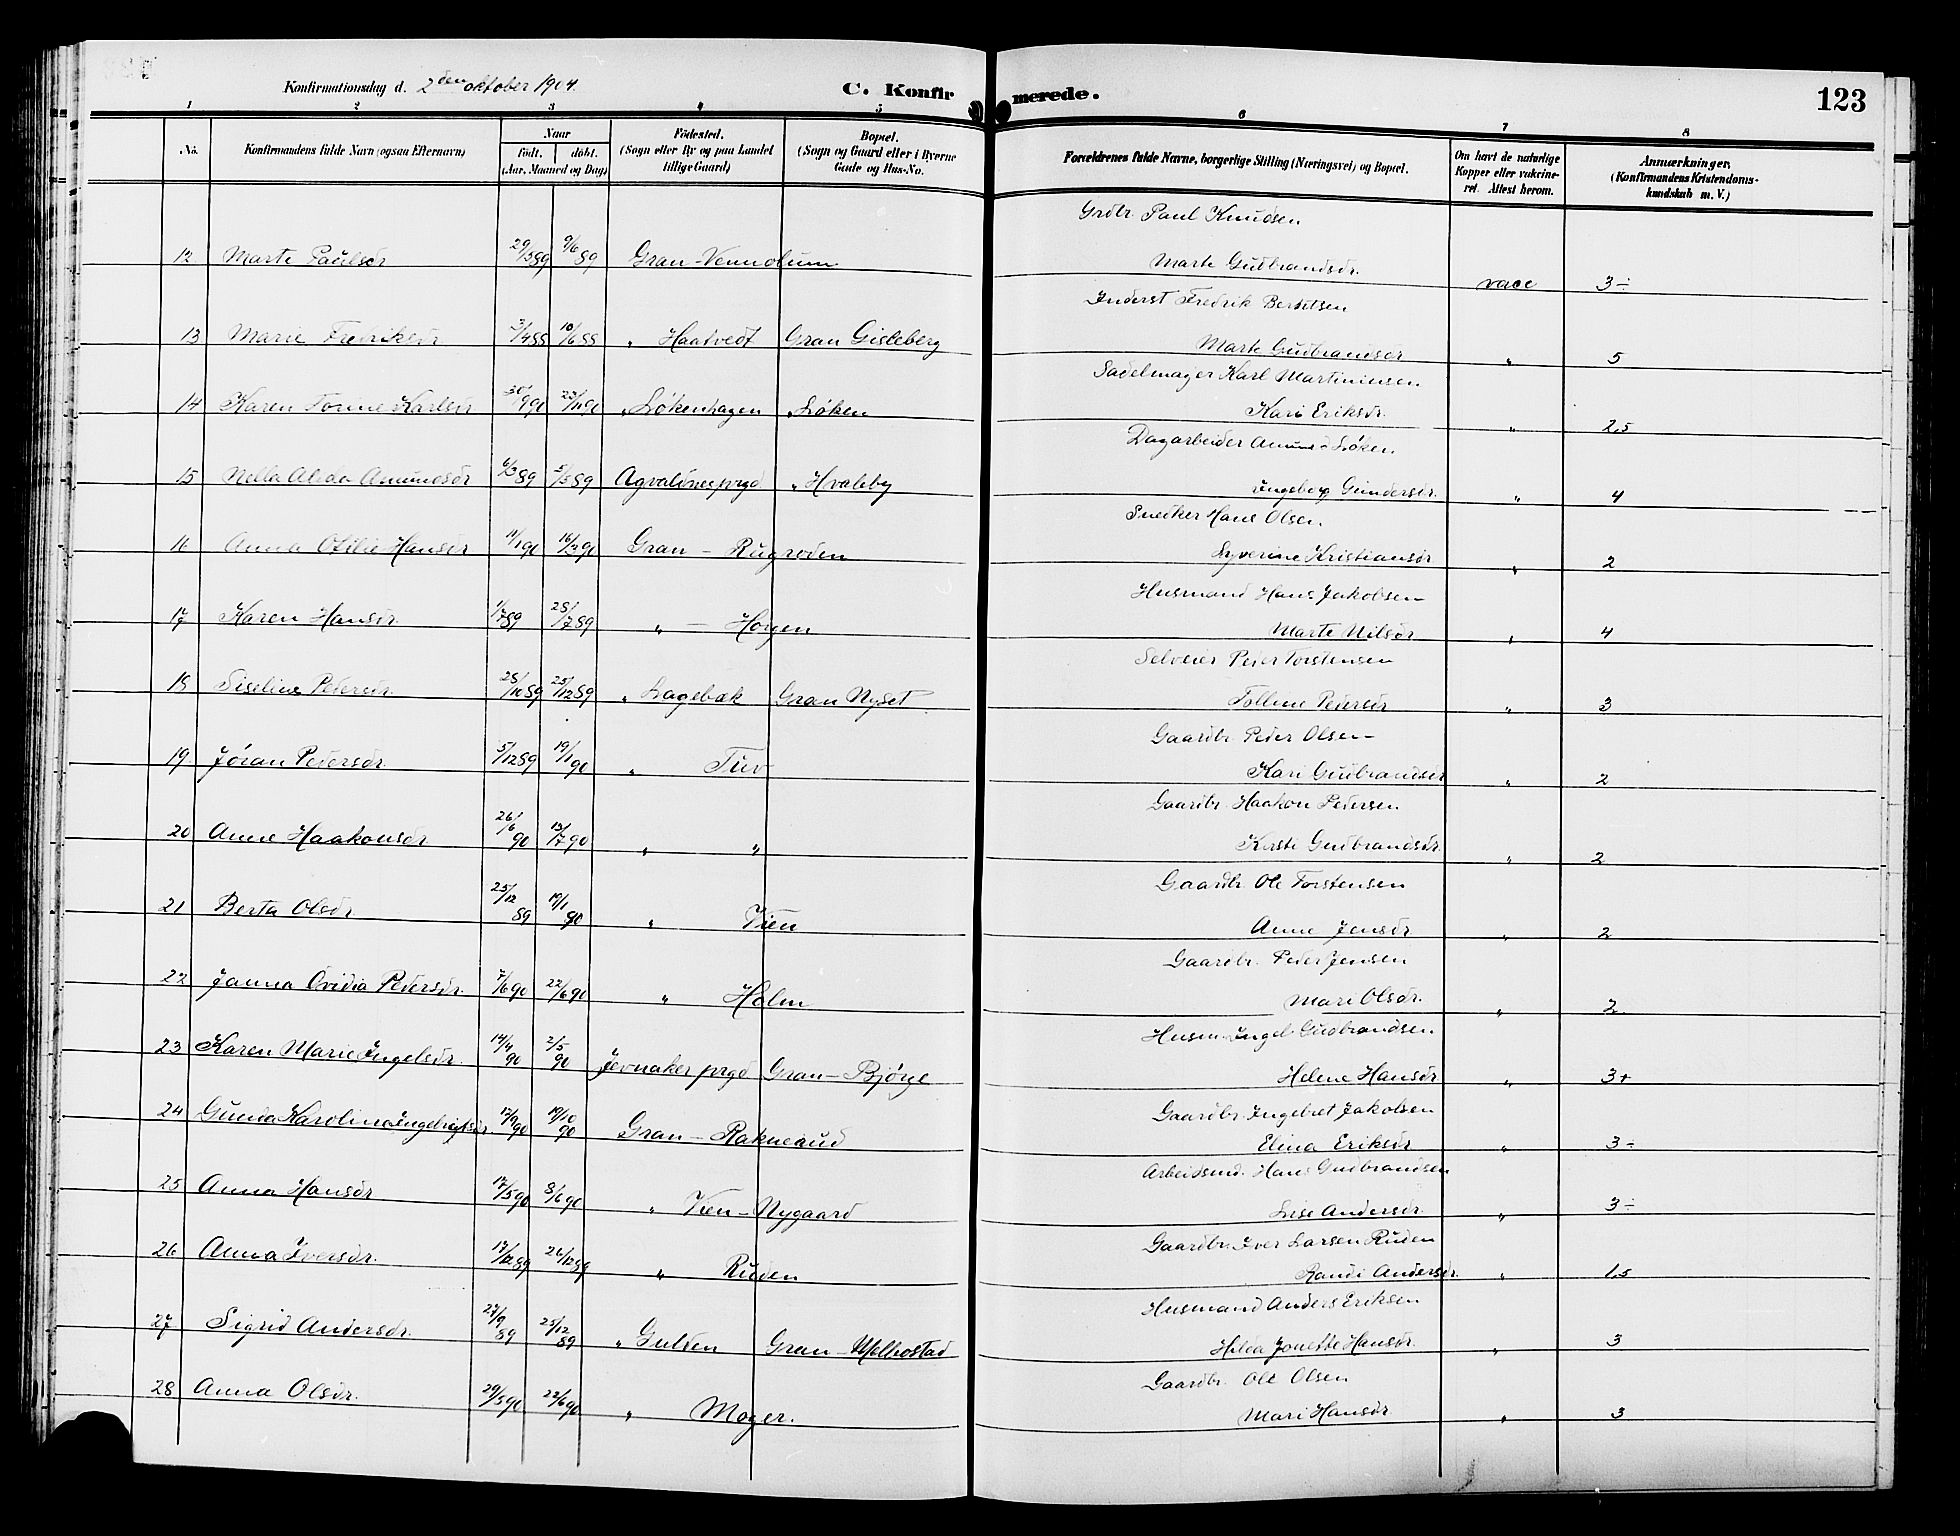 Konfirmationsdag d. 2den oktober 1904.
C. Konfirmerede.
123
1 2 3 4 5 6 7 8
No.
Konfirmandens fulde Navn (ogsaa Efternavn)
Naar
födt. döbt.
(Aar, Maaned og Dag)
Födested.
(Sogn eller By og paa Landet
tillige Gaard)
Bopæl.
(Sogn og Gaard eller i Byerne
Gade og Hus-No.
Forældrenes fulde Navne, borgerlige Stilling (Næringsvei) og Bopæl.
Om havt de naturlige
Kopper eller vakcine-
ret. Attest herom.
Anmærkninger.
(Konfirmandens Kristendoms-
kundskab m. V.)
Grdbr. Paul Knudsen
12 Marte Paulsdr 29/5 89 9/6 89 Gran - Vennolum Marte Gudbrandsdr. vacc 3÷
Inderst Fredrik Berntsen
13 Marie Fredriksdr 3/4 88 10/6 88 " Haatvedt Gran Gisleberg Marte Gudbrandsdr " 5
Sadelmager Karl Martininsen
14 Karen Torine Karlsdr 30/9 90 23/11 90 " Løkenhagen " Løken Kari Eriksdr. " 2,5
Dagarbeider Amund Løken
15 Nella Alida Amundsdr 6/3 89 5/5 89 Aqvalinesprgd " Hvaleby Ingeborg Gundersdr. " 4
Snedker Hans Olsen.
16 Anna Otilie Hansdr 11/1 90 16/3 90 Gran - Rugroden Syverine Kristiansdr " 2
Husmand Hans Jakobsen
17 Karen Hansdr. 1/7 89 28/7 89 " - Horgen Marte Nilsdr " 4
Selveier Peder Torstensen
18 Siseline Pedersdr. 28/10 89 25/12 89 " Lagebak Gran Nyset Tolline Pedersdr " 3
Gaardbr. Peder Olsen
19 Jøran Pedersdr. 5/12 89 19/1 90 " Tuv Kari Gudbrandsdr " 2
Gaardbr. Haakon Pedersen
20 Anne Haakonsdr 26/6 90 13/7 90 " " Kirsti Gudbrandsdr. " 2
Gaardbr. Ole Torstensen
21 Berta Olsdr 25/12 89 19/1 90 " Vien Anne Jensdr " 2
Gaardbr. Peder Jensen
22 Janna Ovidia Pedersdr. 7/6 90 22/6 90 " Holm Mari Olsdr. " 2
Husm. Ingel Gudbrandsen
23 Karen Marie Ingelsdr. 14/4 90 2/5 90 Jevnaker prgd Gran - Bjørge Helene Hansdr " 3+
Gaardbr. Ingebret Jakobsen
24 Gunda Karolina Ingebrigtsdr 17/9 90 19/10 90 Gran - Raknerud Elina Eriksdr " 3÷
Arbeidsmd. Hans Gudbrandsen
25 Anna Hansdr 17/5 90 8/6 90 " Vien - Nygaard Lise Andersdr. " 3÷
Gaardbr. Iver Larsen Ruden
26 Anna Iversdr. 17/12 89 26/12 89 " Ruden Randi Andersdr. " 1,5
Husmand Anders Eriksen
27 Sigrid Andersdr. 27/9 89 25/12 89 " Gulden Gran - Melbostad Hilda Jonette Hansdr. " 3
Gaardbr. Ole Olsen
28 Anna Olsdr. 29/5 90 22/6 90 " Moger. Mari Hansdr " 3